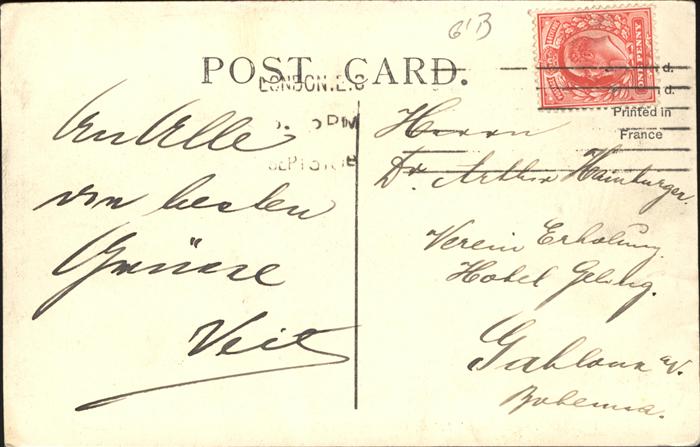 6'B
POST CARD.
ONE PENNY
LONDON.E.C
PM
SEPT
d.
d.
Printed in
France
An Alle
von besten
Grüsse
Veit
Herrn
Dr. Arthur Hamburger.
Verein Erholung.
Hotel Geling.
Gablonz a/N.
Bohemia.